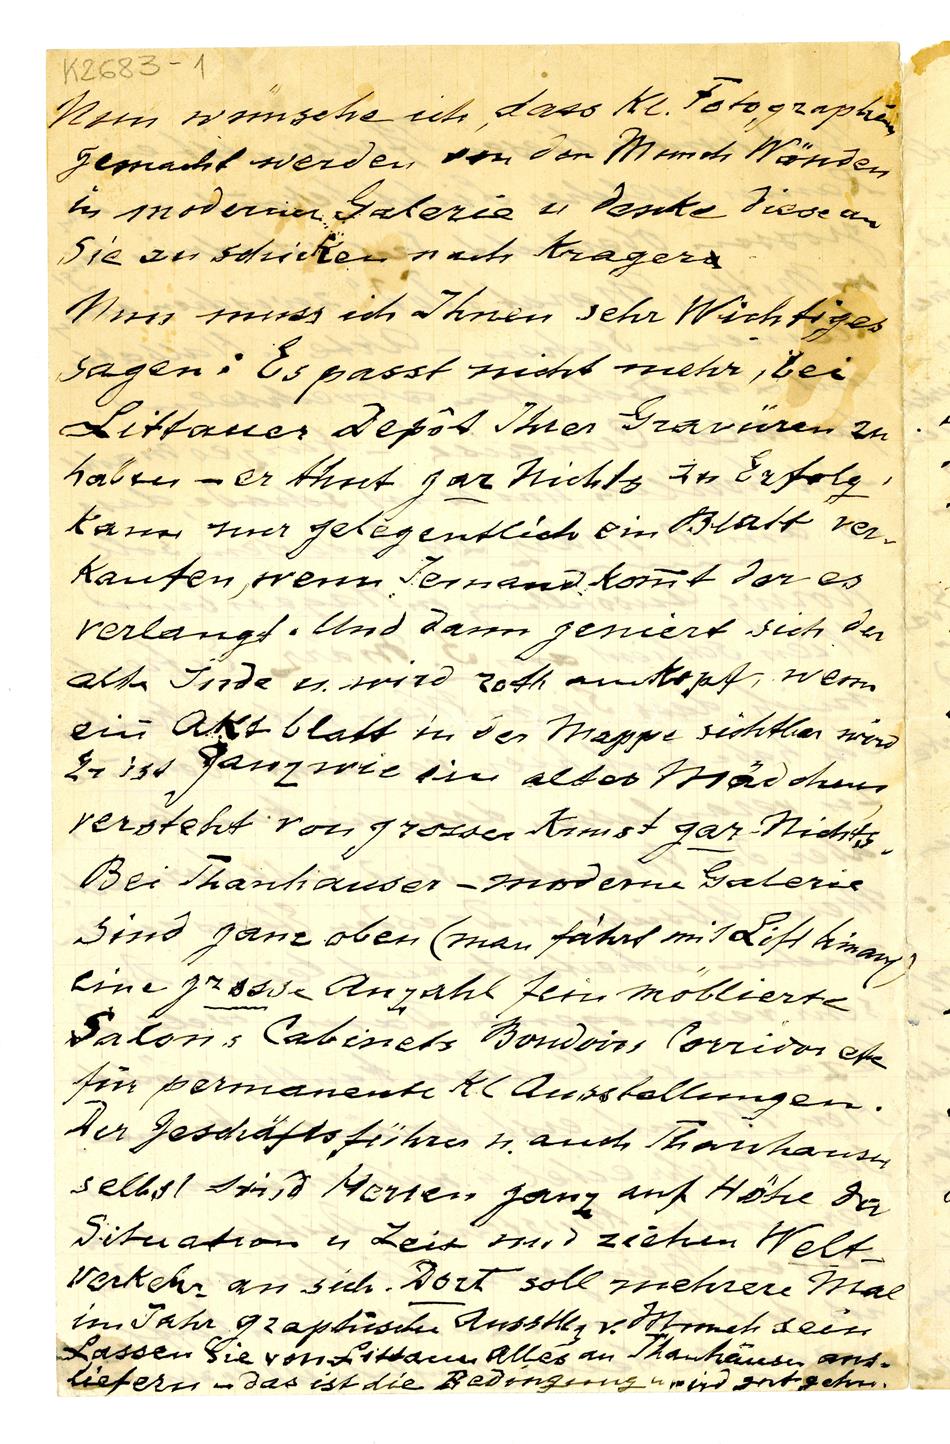 K2683-1
Nun wünsche ich, dass Kl. Fotographien
gemacht werden von den Munch Wänden
in moderner Galerie u denke diese an
Sie zu schicken nach Kragerø
Nun muss ich Ihnen sehr Wichtiges
sagen: Es passt nicht mehr, bei
Littauer Depôt Ihrer Gravüren zu
haben – er thut gar Nichts zu Erfolg,
Kann nur gelegentlich ein Blatt ver-
kaufen, wenn Jemand kom̄t der es
verlangt. Und dann geniert sich der
alte Jude u. wird roth am Kopf, wenn
ein Aktblatt in der Mappe sichtbar wird
Er ist ganz wie ein altes Mädchen
versteht von grosser Kunst gar Nichts.
Bei Thanhauser – moderne Galerie
sind ganz oben (man fährt mit Lift hinauf)
eine grosse Anzahl fein möblierte
Salons Cabinets Boudoirs Corridor etc
für permanente Kl Ausstellungen.
Der Geschäftsführer u. auch Thanhauser
selbst sind Herren ganz auf Höhe der
Situation u Zeit und ziehen Welt-
verkehr an sich. Dort soll mehrere Mal
im Jahr graphische Ausstllg v. Munch sein
Lassen Sie von Littauer Alles an Thanhauser aus-
liefern – das ist die Bedingung u wird gut gehn.